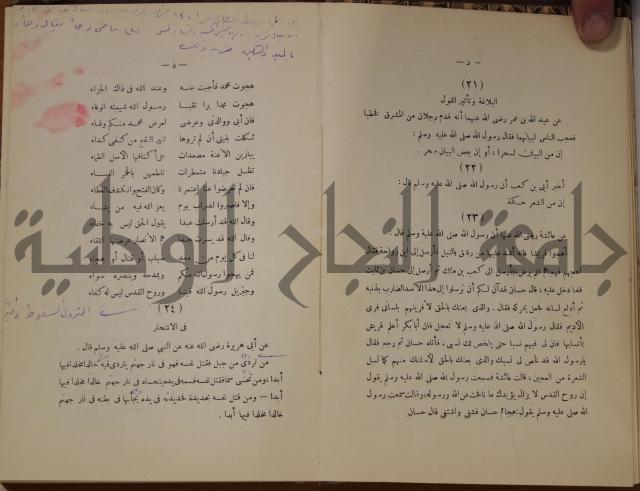 — د —
(٢١)
البلاغة وتأثير القول
عن عبد الله بن عمر رضى الله عنهما أنه قدم رجلان من المشرق فخطبا
فعجب الناس لبيانهما فقال رسول الله صلى الله عليه وسلم :
إن من البيان لسحرا ، أو إن بعض البيان سحر .
(٢٢)
أخبر أبى بن كعب أن رسول الله صلى الله عليه وسلم قال :
إن من الشعر حكمة
(٢٣)
عن عائشة رضى الله عنها أن رسول الله صلى الله عليه وسلم قال :
اهجوا قريشا فانه أشد عليها من رشق بالنبل فأرسل إلى ابن رواحة فقال
اهجهم فهجاهم فلم يرض فأرسل الى كعب بن مالك ثم أرسل إلى حسان بن ثابت
فلما دخل عليه ، قال حسان قد آن لكم أن ترسلوا إلى هذا الأسد الضارب بذنبه
ثم أدلع لسانه فجعل يحركه فقال . والذى بعثك بالحق لأفرينهم بلسانى فرى
الأديم فقال رسول الله صلى الله عليه وسلم لا تعجل فان أبا بكر أعلم قريش
بأنسابها فان لى فيهم نسبا حتى يخلص لك نسبى ، فأتاه حسان ثم رجع فقال
يارسول الله قد خلص لى نسبك والذى بعثك بالحق لأسلنك منهم كما تسل
الشعرة من العجين ، قالت عائشة فسمعت رسول الله صلى الله عليه وسلم يقول
إن روح القدس لا يزال يؤيدك ما نافحت عن الله ورسوله ، وقالت سمعت رسول
الله صلى الله عليه وسلم يقول : هجاهم حسان فشفى واشتفى قال حسان
— ذ —
هجوت محمدا فأجبت عنه وعند الله فى ذاك الجزاء
هجوت محمدا برا تقيا رسول الله شيمته الوفاء
فان أبى ووالدتى وعرضى لعرض محمد منكم وقاء
ثكلت بنيتى أن لم تروها تثير النقع من كنفى كداء
يبارين الأعنة مصعدات على أكتافها الأسل الظماء
تظل جيادنا متمطرات تلطمهن بالخمر النساء
فان أعرضتموا عنا اعتمرنا وكان الفتح وانكشف الغطاء
وإلا فاصبروا لضراب يوم يعز الله فيه من يشاء
وقال الله قد أرسلت عبدا يقول الحق ليس به خفاء
وقال الله قد يسرت جندا هم الأنصار عرضتها اللقاء
لنا فى كل يوم من معد سباب أو قتال أو هجاء
فمن يهجو رسول الله منكم ويمدحه وينصره سواء
وجبريل رسول الله فينا وروح القدس ليس له كفاء
(٢٤)
فى الانتحار
عن أبى هريرة رضى الله عنه عن النبي صلى الله عليه وسلم قال .
من تردى من جبل فقتل نفسه فهو فى نار جهنم يتردى فيه خالدا مخلدا فيها
أبدا ، ومن تحسى سما فقتل نفسه فسمه فى يده يتحساه فى نار جهنم خالدا مخلدا فيها
أبدا — ومن قتل نفسه بحديدة فحديدته فى يده يجأ بها فى بطنه فى نار جهنم
خالدا مخلدا فيها أبدا .
جامعة النجاح الوطنية